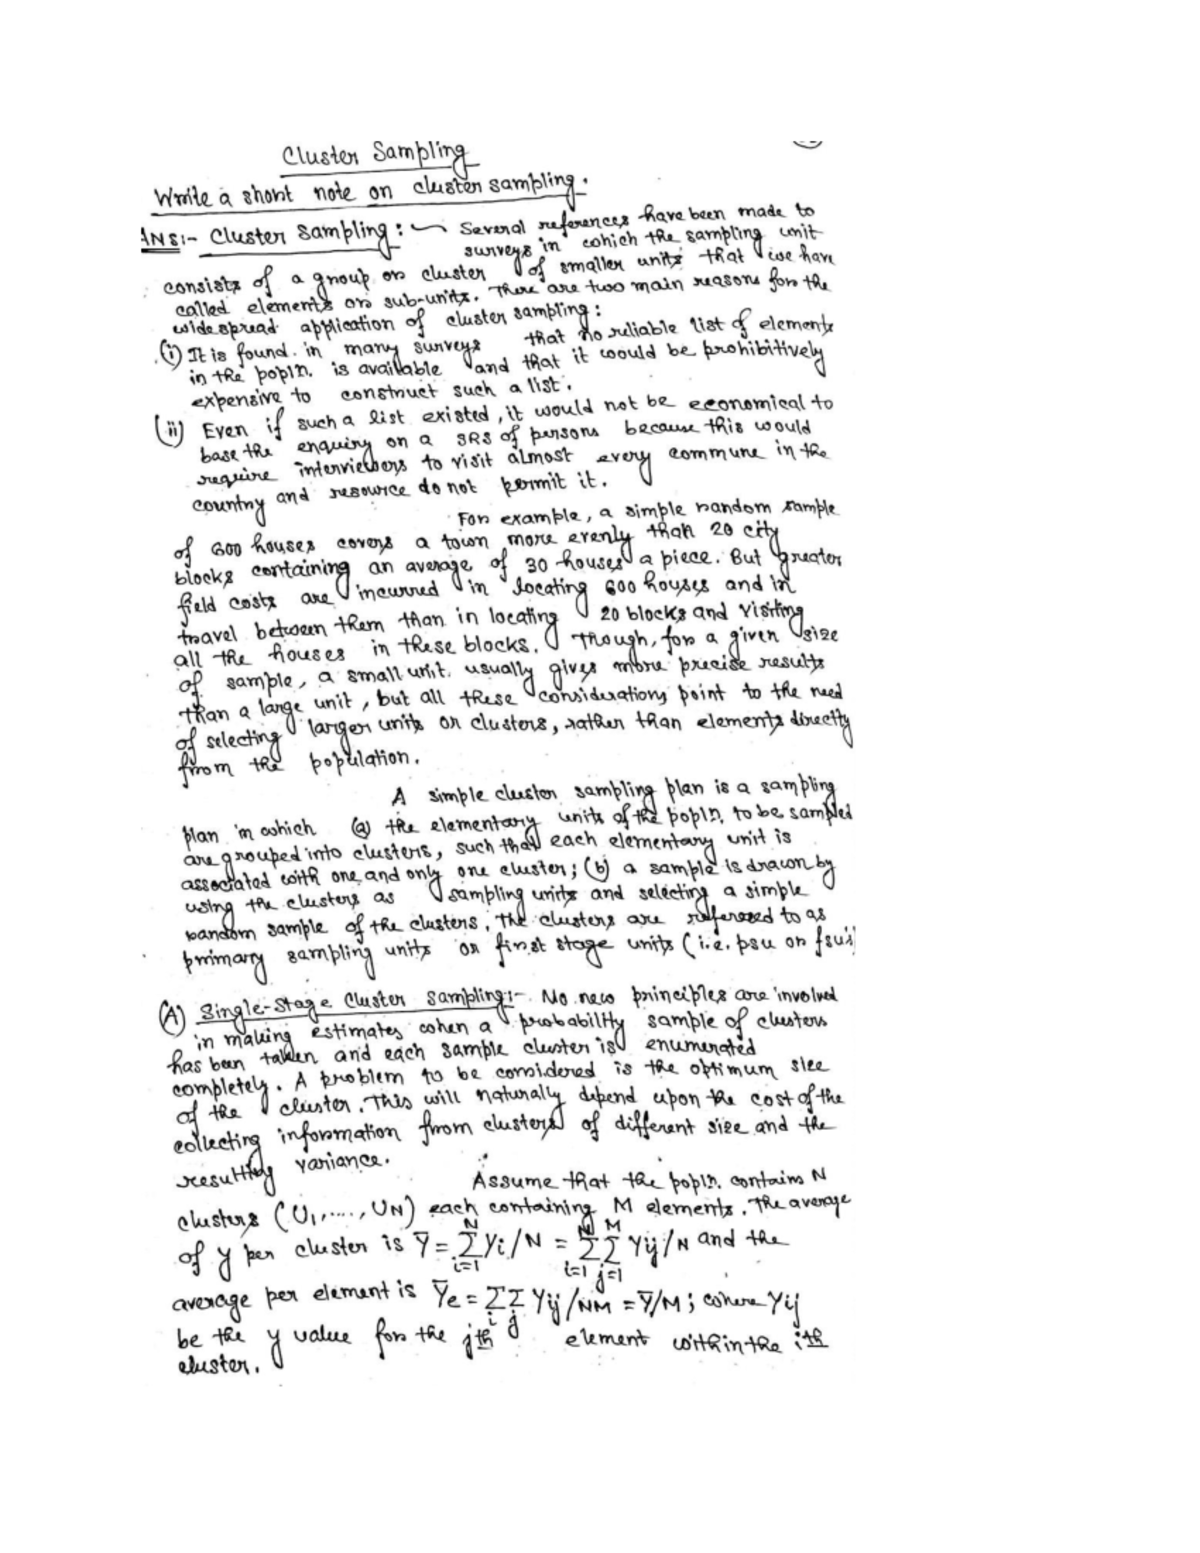 Cluster Sampling
Write a short note on cluster sampling.
ANS:- Cluster Sampling : ~ Several references have been made to
surveys in which the sampling unit
consists of a group or cluster of smaller units that we have
called elements or sub-units. There are two main reasons for the
widespread application of cluster sampling :
(i) It is found in many surveys that no reliable list of elements
in the popln. is available and that it would be prohibitively
expensive to construct such a list.
(ii) Even if such a list existed, it would not be economical to
base the enquiry on a SRS of persons because this would
require interviewers to visit almost every commune in the
country and resource do not permit it.
For example, a simple random sample
of 600 houses covers a town more evenly than 20 city
blocks containing an average of 30 houses a piece. But greater
field costs are incurred in locating 600 houses and in
travel between them than in locating 20 blocks and visiting
all the houses in these blocks. Though, for a given size
of sample, a small unit usually gives more precise results
than a large unit, but all these considerations point to the need
of selecting larger units or clusters, rather than elements directly
from the population.
A simple cluster sampling plan is a sampling
plan in which (a) the elementary units of the popln. to be sampled
are grouped into clusters, such that each elementary unit is
associated with one and only one cluster; (b) a sample is drawn by
using the clusters as sampling units and selecting a simple
random sample of the clusters. The clusters are refereed to as
primary sampling units or first stage units (i.e. psu or fsu's)
(A) Single-Stage Cluster Sampling:- No new principles are involved
in making estimates when a probability sample of clusters
has been taken and each sample cluster is enumerated
completely. A problem to be considered is the optimum size
of the cluster. This will naturally depend upon the cost of the
collecting information from clusters of different size and the
resulting variance.
Assume that the popln. contains N
clusters (U₁,...., U_N) each containing M elements. The average
of y per cluster is Ȳ = Σ_{i=1}^{N} Yi/N = Σ_{i=1}^{N} Σ_{j=1}^{M} Yij/N and the
average per element is Ȳe = Σ_i Σ_j Yij/NM = Ȳ/M ; where Yij
be the y value for the jth element within the ith
cluster.